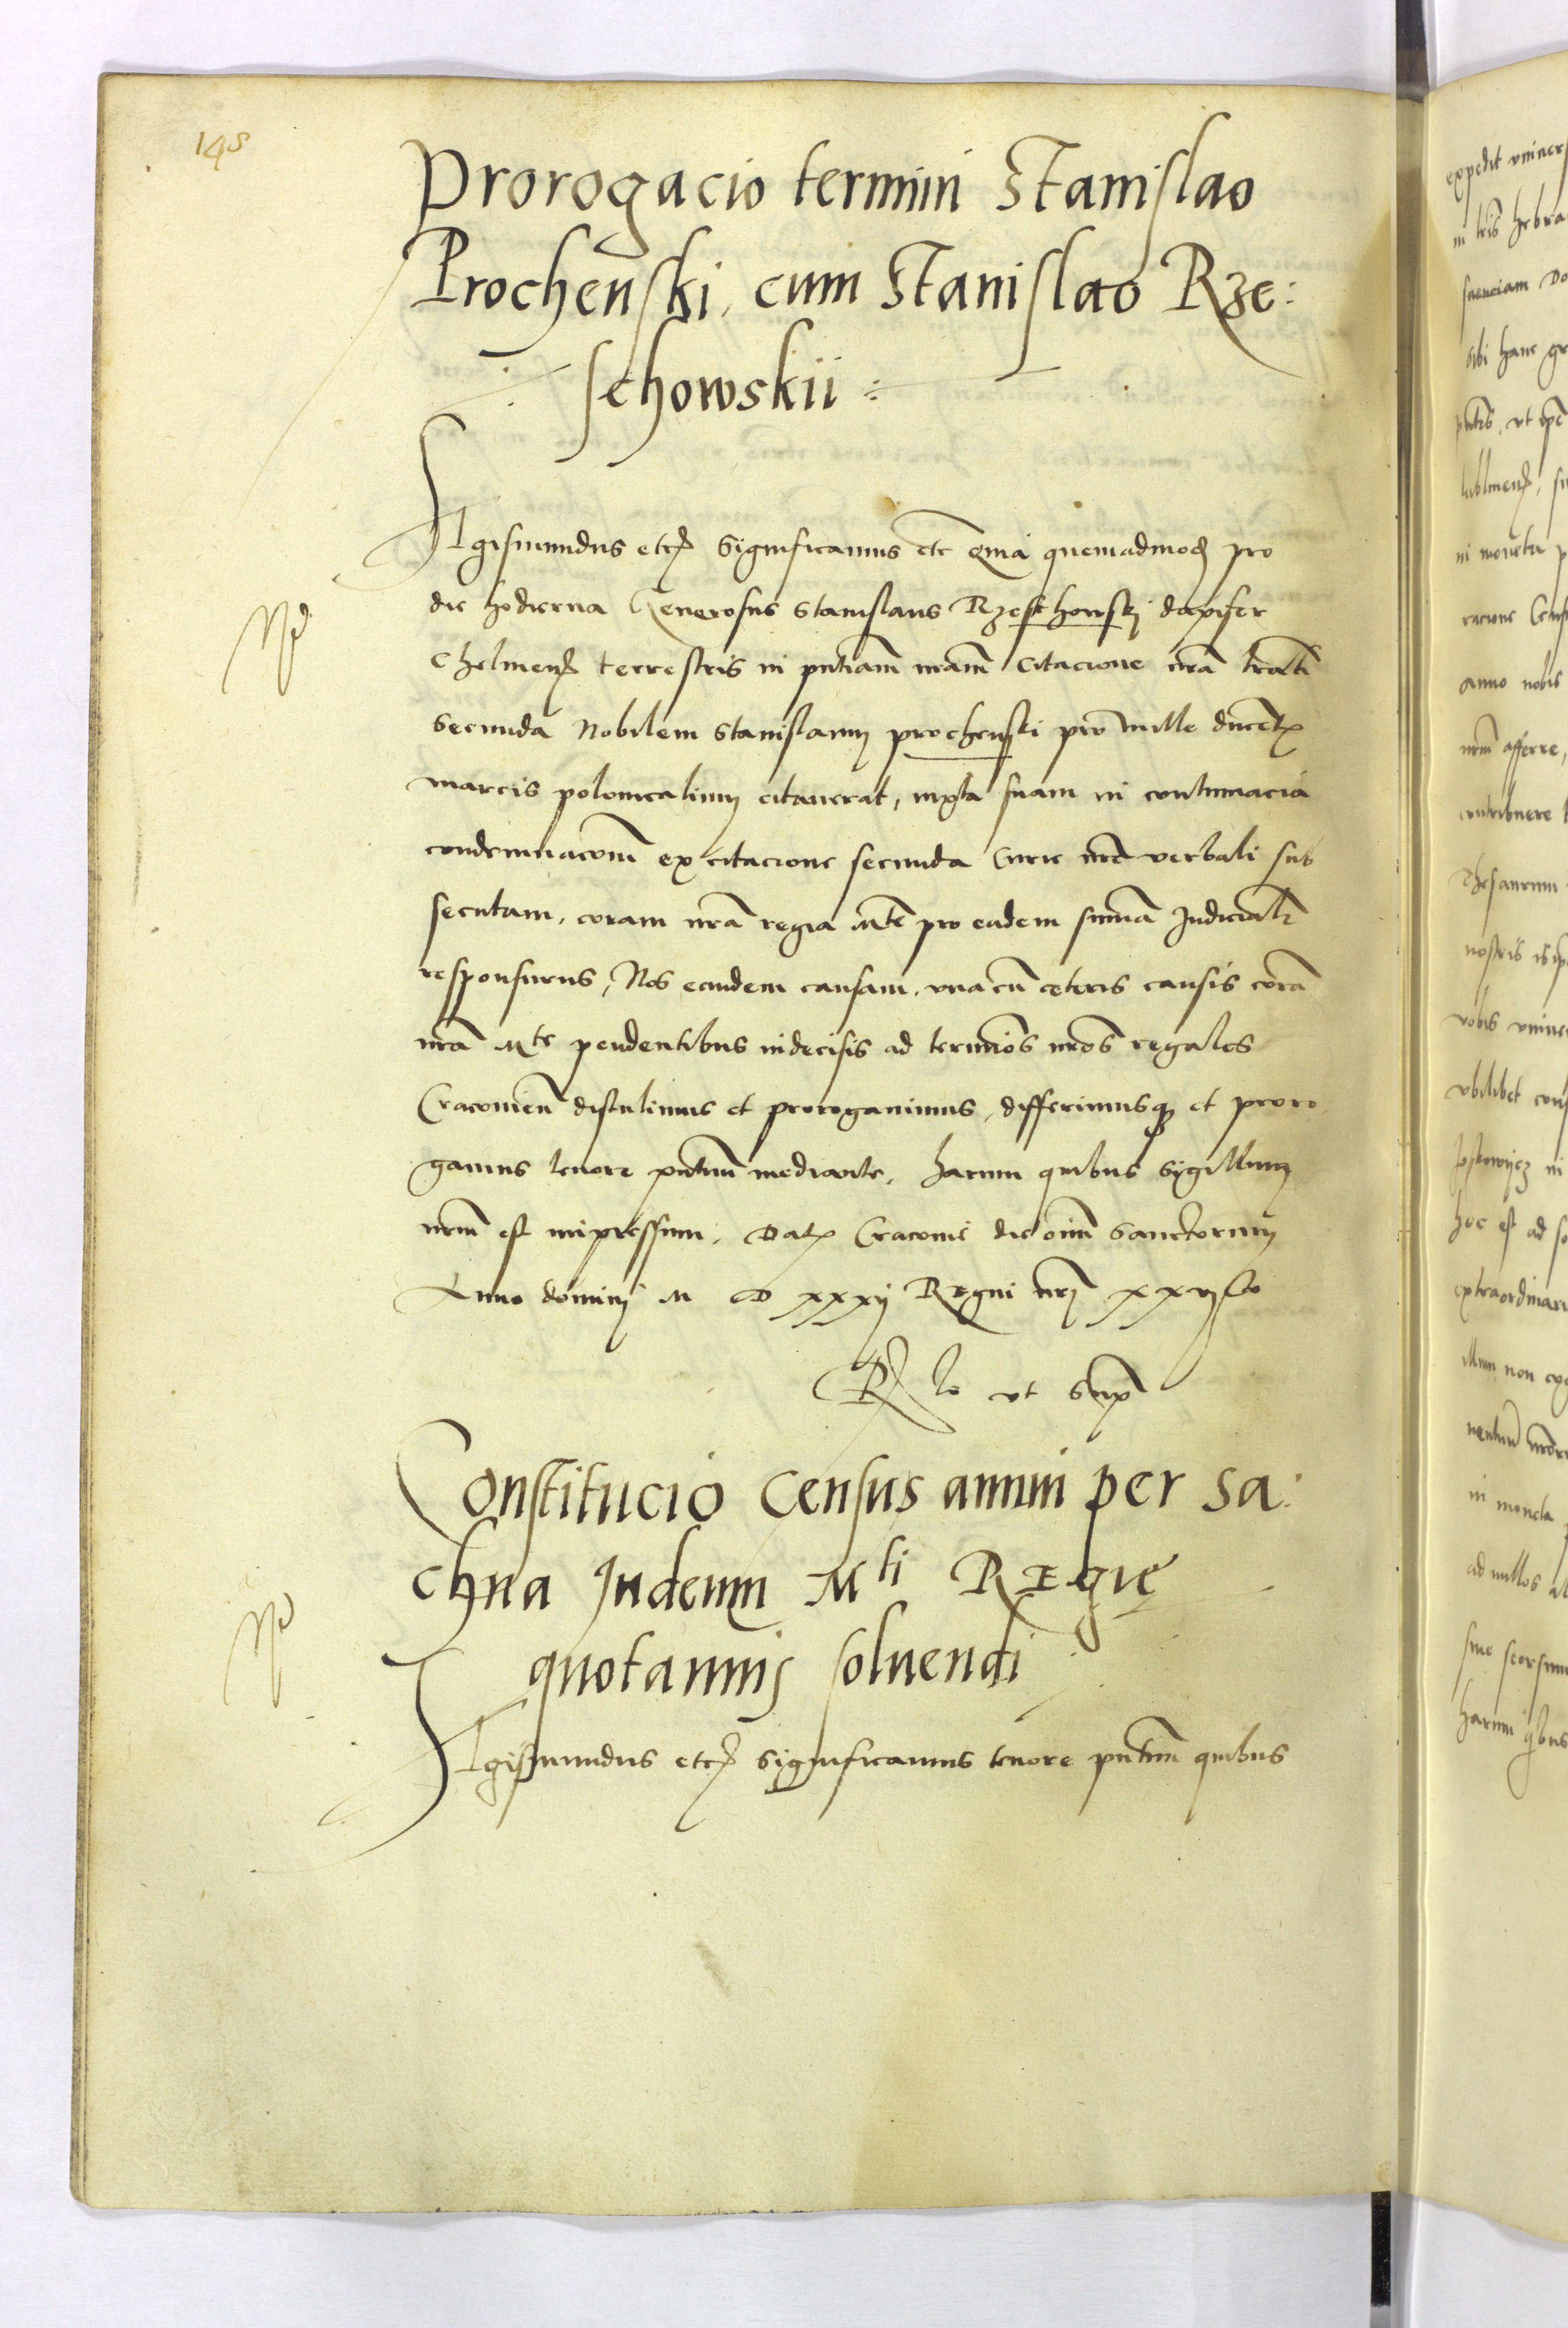 148
Prorogacio termini Stanislao
Prochenski, cum Stanislao Rze:
schowskii
Sigismundus etc Significamus etc Quia quemadmod pro
die hodierna Generosus Stanislaus Rzeschowski dapifer
Chelmen terrestris in pntiam nram citacione nra trati
secunda Nobilem Stanislaum prochenski pro mille ducent
marcis polonicalium citaverat, iuxta suam in contumacia
condemnacom ex citacione secunda Curie nre verbali sub
secutam, coram nra regia Mte pro eadem summa Judicialr
responsurus, Nos eandem causam, una cu ceteris causis cora
nra Mte pendentibus indecisis ad terminos nros regales
Cracovien distulimus et prorogavimus, differimusq et proro
gamus tenore pntium mediante, harum quibus Sigillum
nrm est impressum. Dat Cracovie die oim Sanctorum
Anno domini M D xxxij Regni nri xxvjto
Rlo ut Sup
Constitucio Census annui per Sa:
chna Judeum Mti Regie
quotannis solvendi
Sigismundus etc Significamus tenore pntium quibus
expedit univer
in lris hebra
sibi hanc gr
ut
ni moneta p
racione Cens
anno nobis
nrm afferre,
contribuere
Thesaurum
nostris
vobis unive
ubilibet cons
Joskowycz in
hoc est ad so
extraordinari
illum non cog
in moneta
ad nullos al
sive seorsim
harum qbus